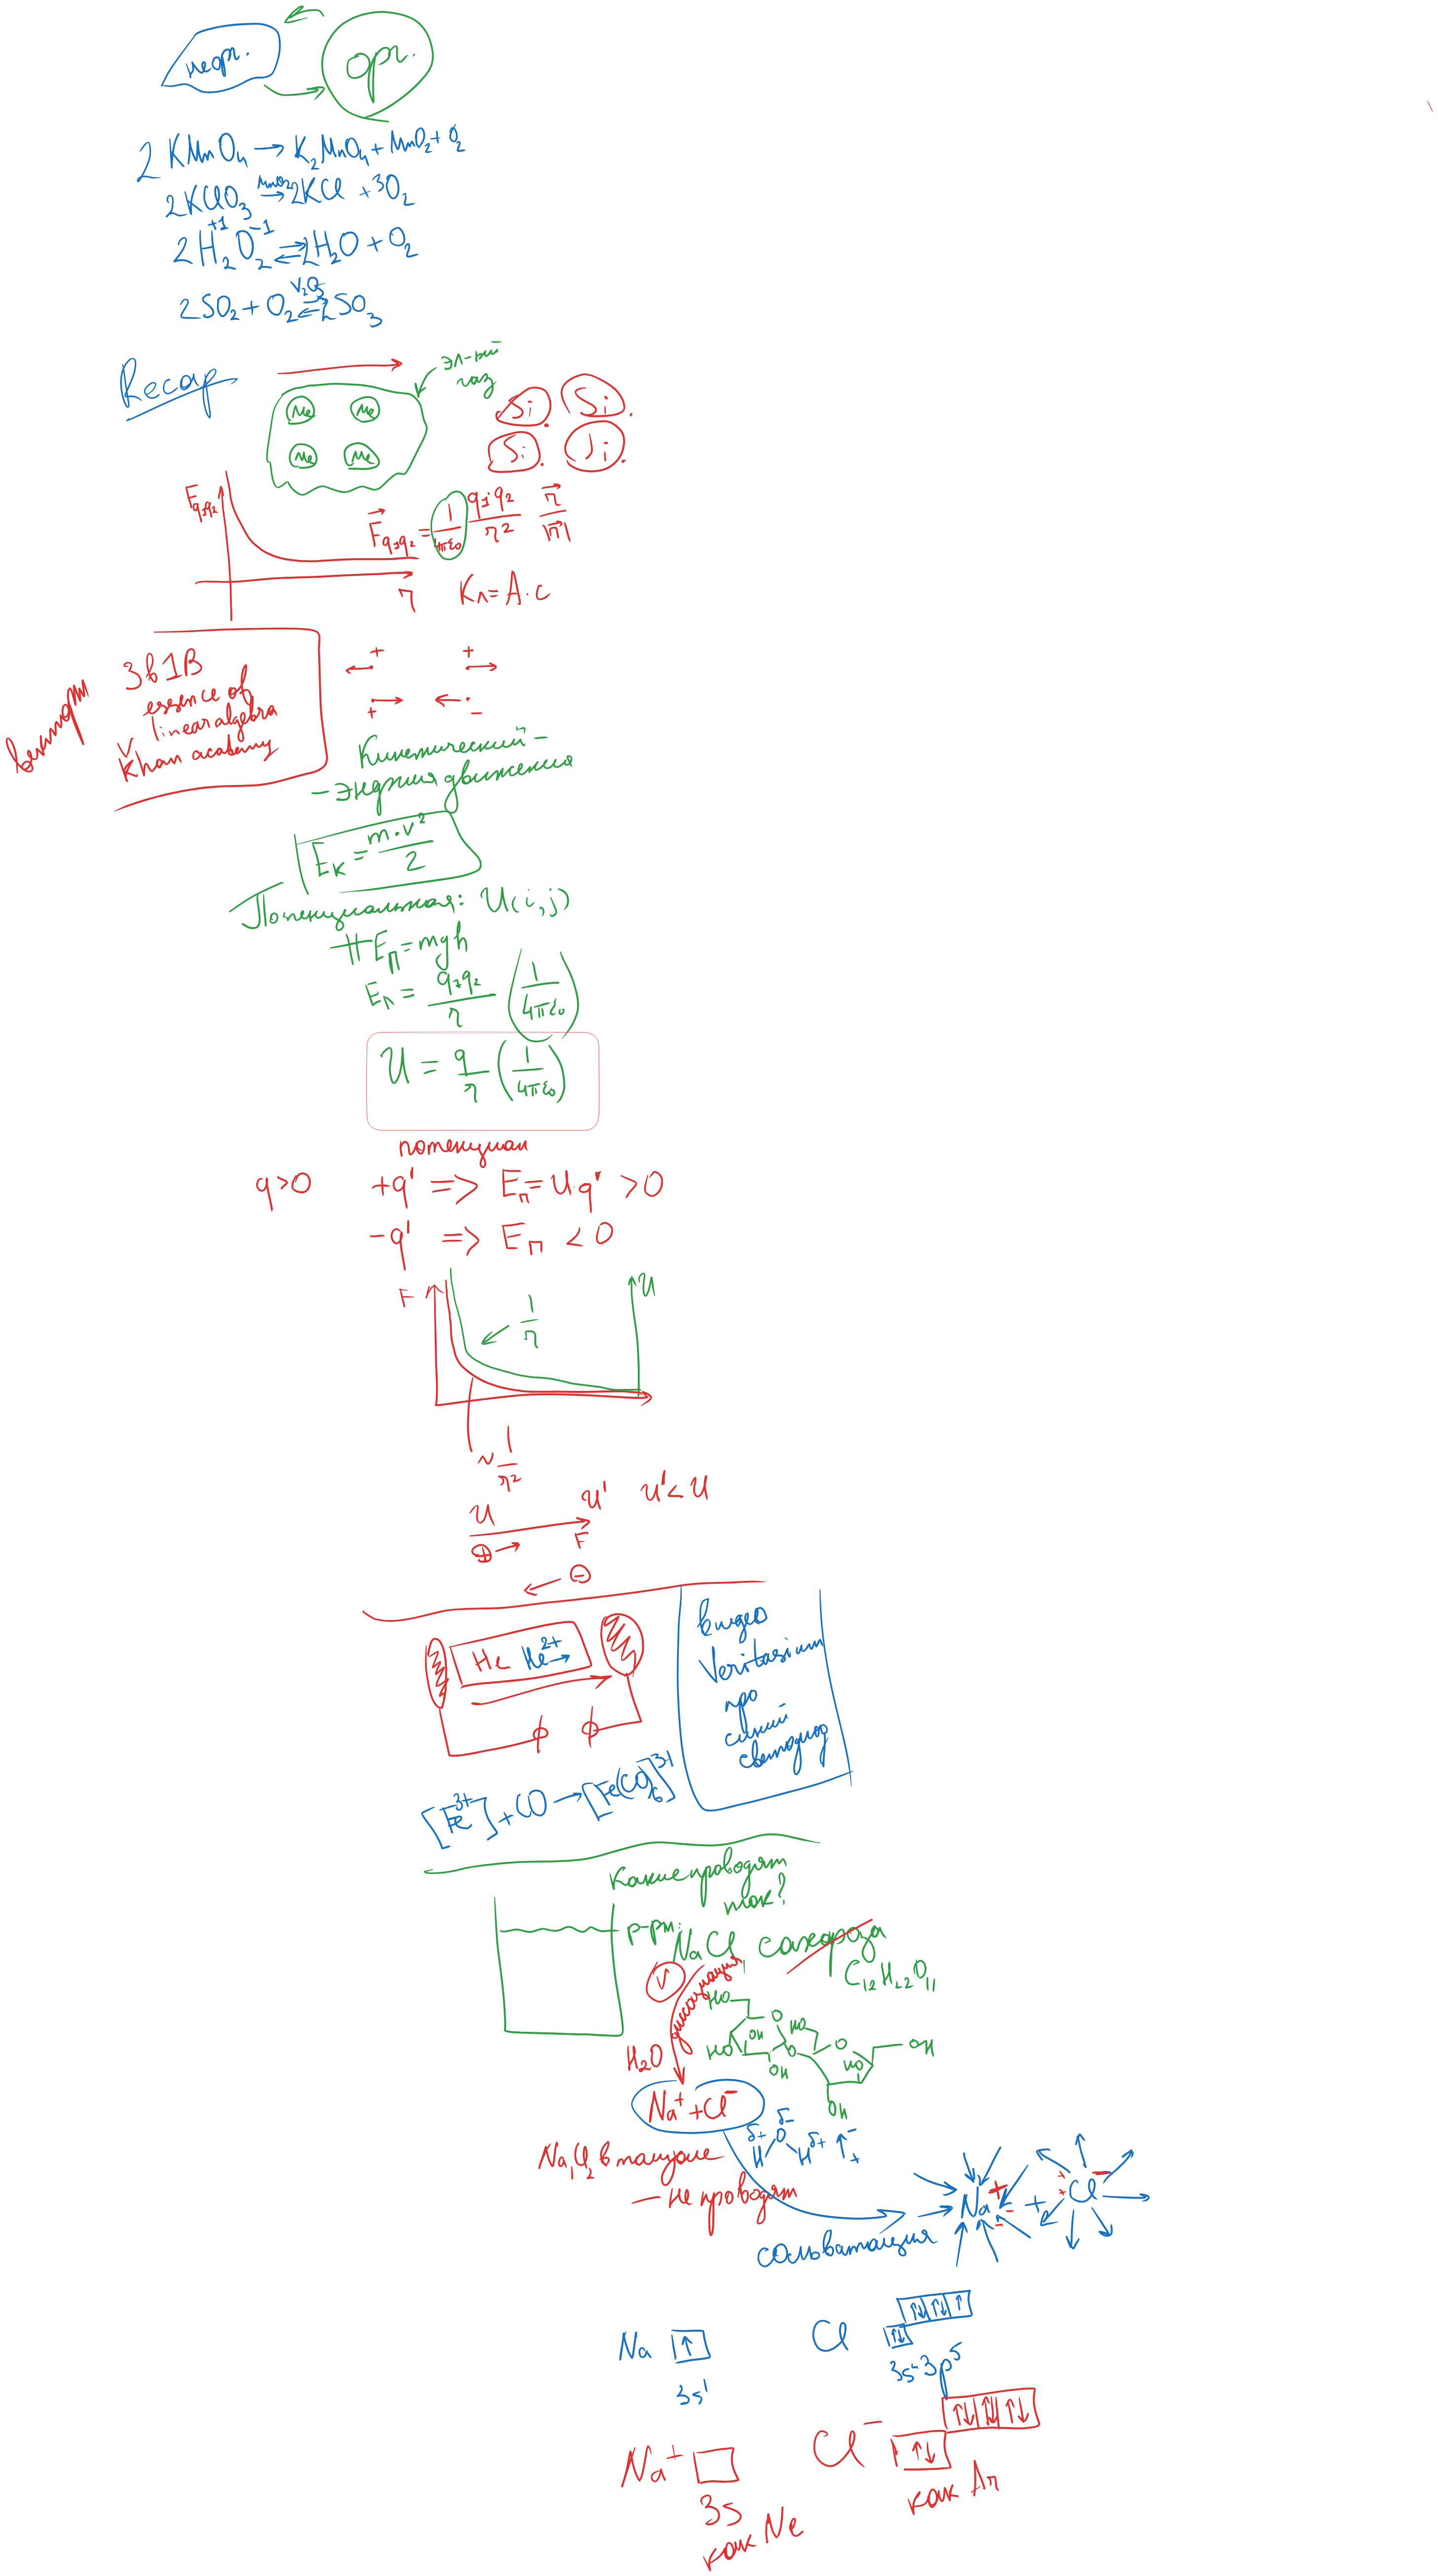 неорг.
орг.
2 KMnO₄ → K₂MnO₄ + MnO₂ + O₂
2KClO₃ MnO₂→ 2KCl + 3O₂
+1 -1
2H₂O₂ ⇄ 2H₂O + O₂
V₂O₅
2SO₂ + O₂ ⇄ 2SO₃
Recap
эл-ый
газ
Me Me
Me Me
Si. Si.
Si. Si.
F q₁q₂
F⃗ q₁q₂ = 1/4πε₀ q₁·q₂/r² r⃗/|r⃗|
r
Кл = А·с
векторы
3b1B
essence of
linear algebra
v Khan academy
+ +
+ -
Кинетический –
– энергия движения
Eк = m·v²/2
Потенциальная: U(i,j)
# Eп = mgh
Eп = q₁q₂/r (1/4πε₀)
U = q/r (1/4πε₀)
потенциал
q>0 +q' => Eп = U·q' > 0
-q' => Eп < 0
F
U
1/r
~ 1/r²
U U' U' < U
⊕ → F
← ⊖
He He²⁺ →
видео
Veritasium
про
синий
светодиод
[Fe³⁺] + CO → [Fe(CO)₆]³⁺
Какие проводят
ток?
р-ры:
NaCl, сахароза
C₁₂H₂₂O₁₁
v
диссоциация
H₂O
HO
O
OH
HO
HO
OH
O
O
HO
OH
OH
Na⁺ + Cl⁻
δ-
δ+ O
H H δ+ ↑ - +
NaCl в толуоле
— не проводят
Na + + Cl -
сольватация
Na ↑
3s¹
Cl ↑↓ ↑↓ ↑↓ ↑
3s²3p⁵
Na⁺
3s
как Ne
Cl⁻ ↑↓ ↑↓ ↑↓ ↑↓
как Ar